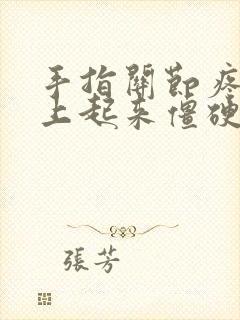 手指關節疼
上起來僵硬
張芳